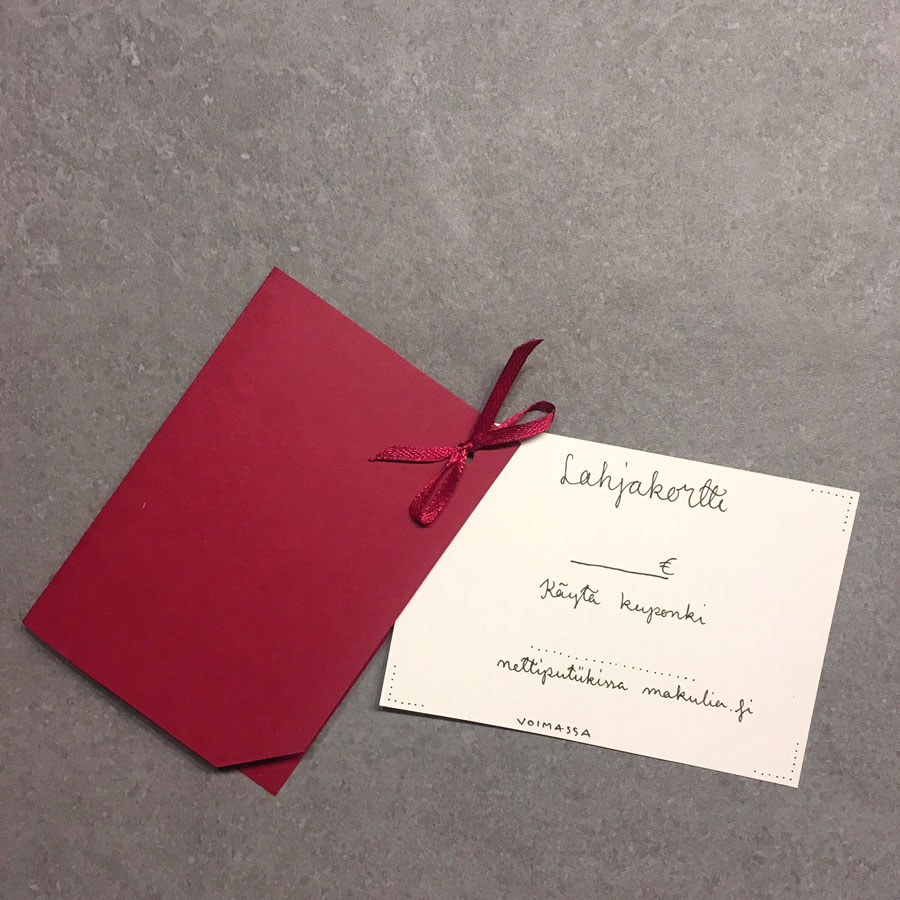 Lahjakortti
______€
Käytä kuponki
....................
nettiputiikissa makulia.fi
VOIMASSA